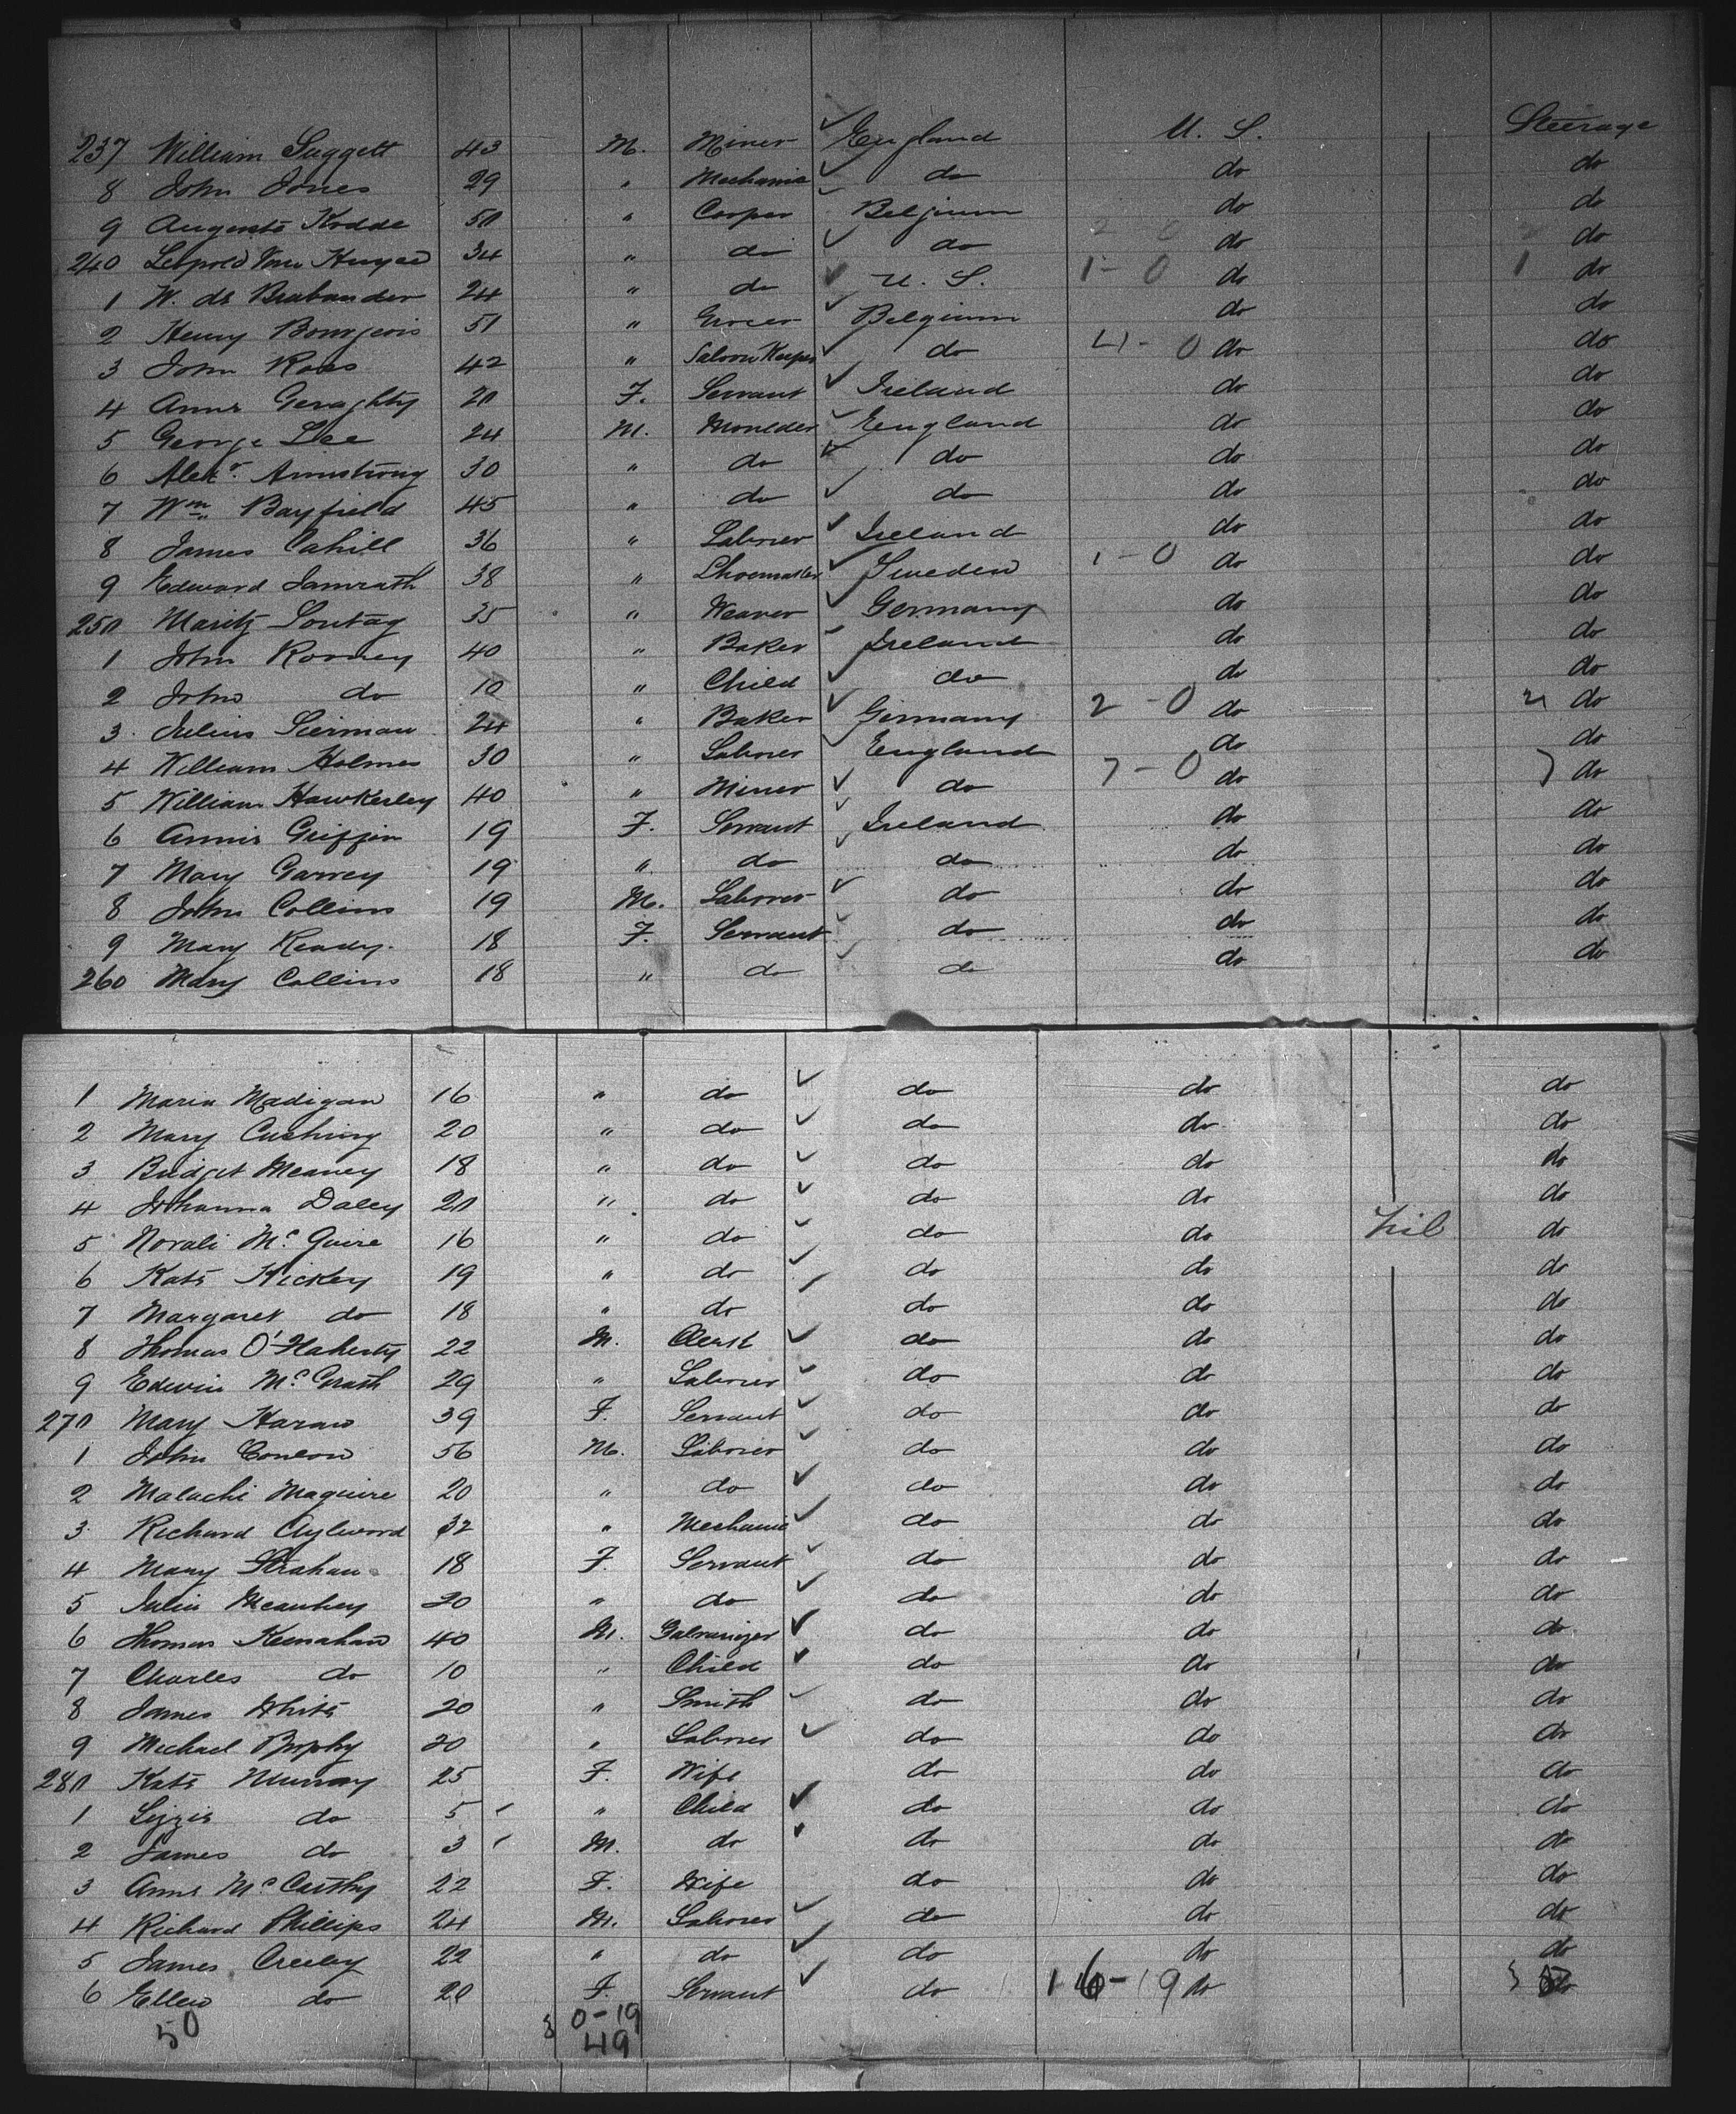 237 William Suggett 43 M. Miner England U. S. Steerage
8 John Jones 29 " Mechanic do do do
9 Auguste Kodde 50 " Cooper Belgium do do
240 Leopold 34 " do do do do
1 W. de Brabander 24 " do U. S. 1-0 do 1 do
2 Henry Bourgeois 51 " Grocer Belgium do do
3 John Raes 42 " Saloon Keeper do 4-0 do do
4 Anne Geraghty 20 F. Servant Ireland do do
5 George Lee 24 M. Moulder England do do
6 Alexr. Armstrong 30 " do do do do
7 Wm. Bayfield 45 " do do do do
8 James Cahill 36 " Laborer Ireland do do
9 Edward Jamrath 38 " Shoemaker Sweden 1-0 do do
250 Moritz Sontag 35 " Weaver Germany do do
1 John Rooney 40 " Baker Ireland do do
2 John do 10 " Child do do do
3 Julius Sierman 24 " Baker Germany 2-0 do 2 do
4 William Holmes 30 " Laborer England do do
5 William Hawkerley 40 " Miner do 7-0 do 7 do
6 Annie Griffin 19 F. Servant Ireland do do
7 Mary Garvey 19 " do do do do
8 John Collins 19 M. Laborer do do do
9 Mary Ready 18 F. Servant do do do
260 Mary Collins 18 " do do do do
1 Maria Madigan 16 " do do do do
2 Mary Cushing 20 " do do do do
3 Bridget Meaney 18 " do do do do
4 Johanna Daley 20 " do do do do
5 Norah McGuire 16 " do do do do
6 Kate Hickey 19 " do do do do
7 Margaret do 18 " do do do do
8 Thomas O'Flaherty 22 M. Clerk do do do
9 Edwin McGrath 29 " Laborer do do do
270 Mary Haran 39 F. Servant do do do
1 John Conlon 56 M. Laborer do do do
2 Malachi Maguire 20 " do do do do
3 Richard Aylward 32 " Mechanic do do do
4 Mary Strahan 18 F. Servant do do do
5 Julia 20 " do do do do
6 Thomas Keenahan 40 M. Galvanizer do do do
7 Charles do 10 " Child do do do
8 James White 20 " Smith do do do
9 Michael Brophy 20 " Laborer do do do
280 Kate Murray 25 F. Wife do do do
1 Lizzie do 5 " Child do do do
2 James do 3 M. do do do do
3 Anne McCarthy 22 F. Wife do do do
4 Richard Phillips 24 M. Laborer do do do
5 James Creeley 22 " do do do do
6 Ellen do 20 F. Servant do 16-19 do do
50 0-19
49